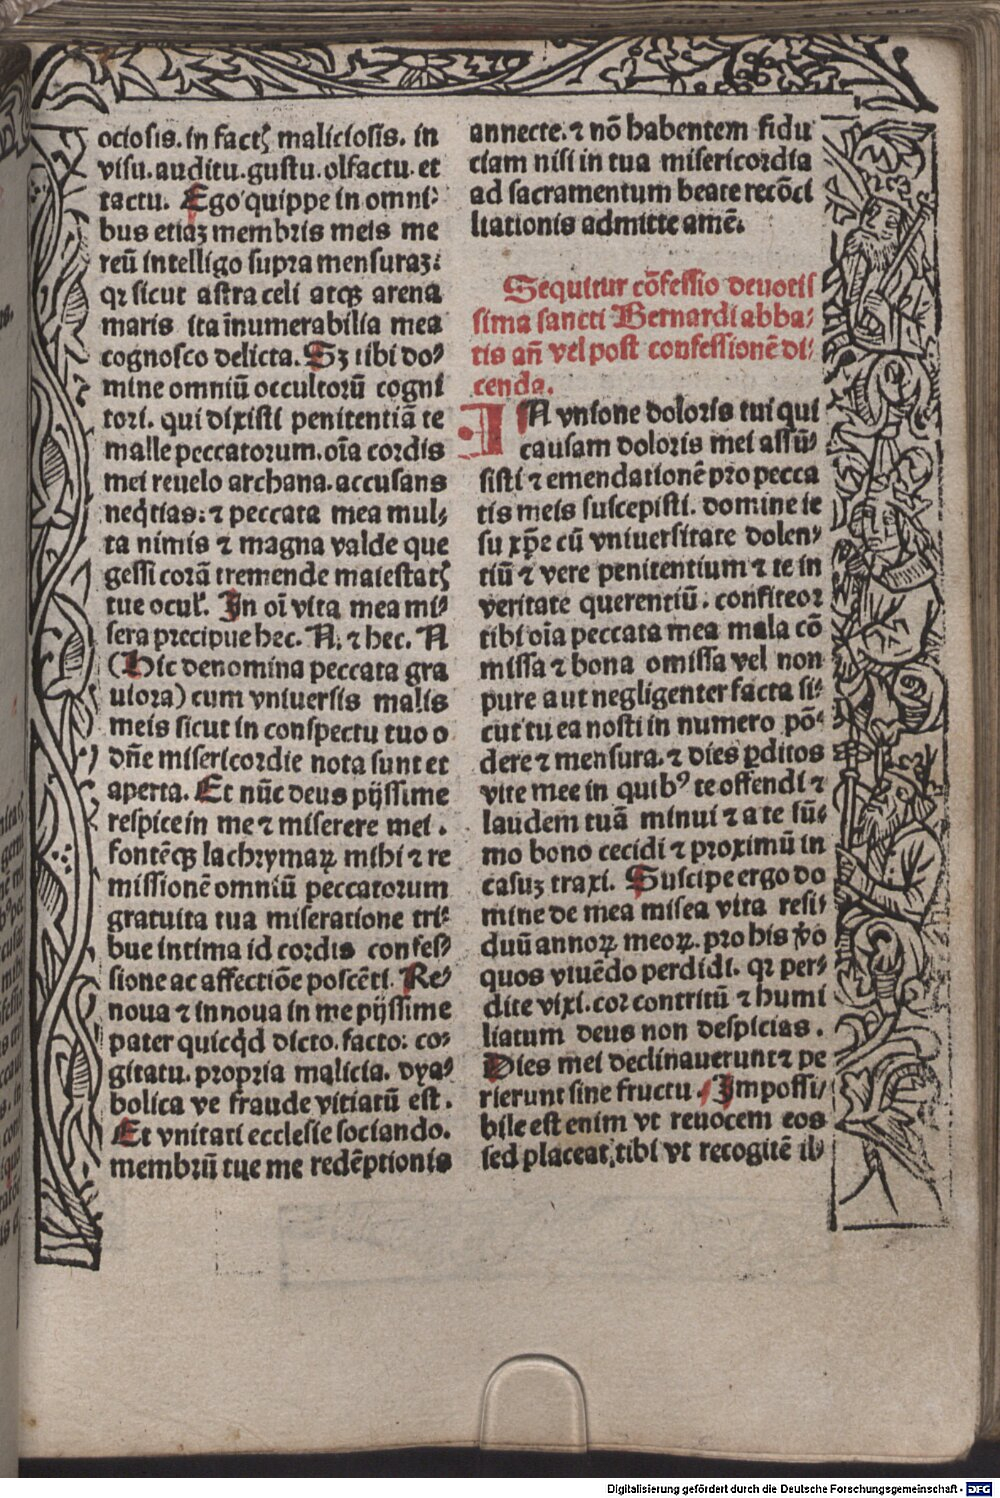 ociosis. in factꝭ maliciosis. in
visu. auditu. gustu. olfactu. et
tactu. Ego quippe in omni⸗
bus etiaꝫ membris meis me
reū intelligo supra mensuraꝫ:
qꝛ sicut astra celi atqꝫ arena
maris ita īnumerabilia mea
cognosco delicta. Sꝫ tibi do⸗
mine omniū occultorū cogni
tori. qui dixisti penitentiā te
malle peccatorum. oīa cordis
mei reuelo archana. accusans
neq̄tias: ⁊ peccata mea mul⸗
ta nimis ⁊ magna valde que
gessi corā tremende maiestatꝭ
tue ocul'. In oī vita mea mi⸗
sera precipue hec. N. ⁊ hec. N
(Hic denomina peccata gra
uiora) cum vniuersis malis
meis sicut in conspectu tuo o
dn̄e misericordie nota sunt et
aperta. Et nūc deus pijssime
respice in me ⁊ miserere mei.
fontēqꝫ lachrymaꝝ mihi ⁊ re
missionē omniū peccatorum
gratuita tua miseratione tri⸗
bue intima id cordis confes⸗
sione ac affectiōe poscēti. Re⸗
noua ⁊ innoua in me pijssime
pater quicq̄d dicto. facto: co⸗
gitatu. propria malicia. dya⸗
bolica ve fraude vitiatū est.
Et vnitati ecclesie sociando.
membrū tue me redēptionis
annecte. ⁊ nō habentem fidu
ciam nisi in tua misericordia
ad sacramentum beate recōci
liationis admitte amē.
Sequitur cōfessio deuotis
sima sancti Bernardi abba⸗
tis an̄ vel post confessionē di⸗
cenda.
IN vnione doloris tui qui
causam doloris mei assū⸗
sisti ⁊ emendationē pro pecca
tis meis suscepisti. domine ie
su xp̄e cū vniuersitate dolen⸗
tiū ⁊ vere penitentium ⁊ te in
veritate querentiū. confiteor
tibi oīa peccata mea mala cō
missa ⁊ bona omissa vel non
pure aut negligenter facta si⸗
cut tu ea nosti in numero pō⸗
dere ⁊ mensura. ⁊ dies ꝑditos
vite mee in quibꝰ te offendi ⁊
laudem tuā minui ⁊ a te sū⸗
mo bono cecidi ⁊ proximū in
casuꝫ traxi. Suscipe ergo do
mine de mea misea vita resi⸗
duū annoꝝ meoꝝ. pro his v̄o
quos viuēdo perdidi. qꝛ per⸗
dite vixi. cor contritū ⁊ humi
liatum deus non despicias.
Dies mei declinauerunt ⁊ pe
rierunt sine fructu. Impossi⸗
bile est enim vt reuocem eos
sed placeat tibi vt recogitē il⸗
Digitalisierung gefördert durch die Deutsche Forschungsgemeinschaft - DFG